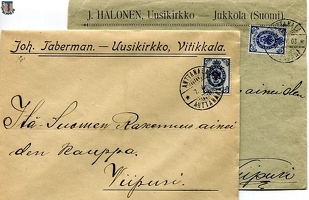 J. HALONEN, Uusikirkko — Jukkola (Suomi).
Joh. Taberman. — Uusikirkko, Vitikkala.
Itä Suomen Rakennus ainei
den Kauppa.
Viipuri.
ainei den
Viipuri